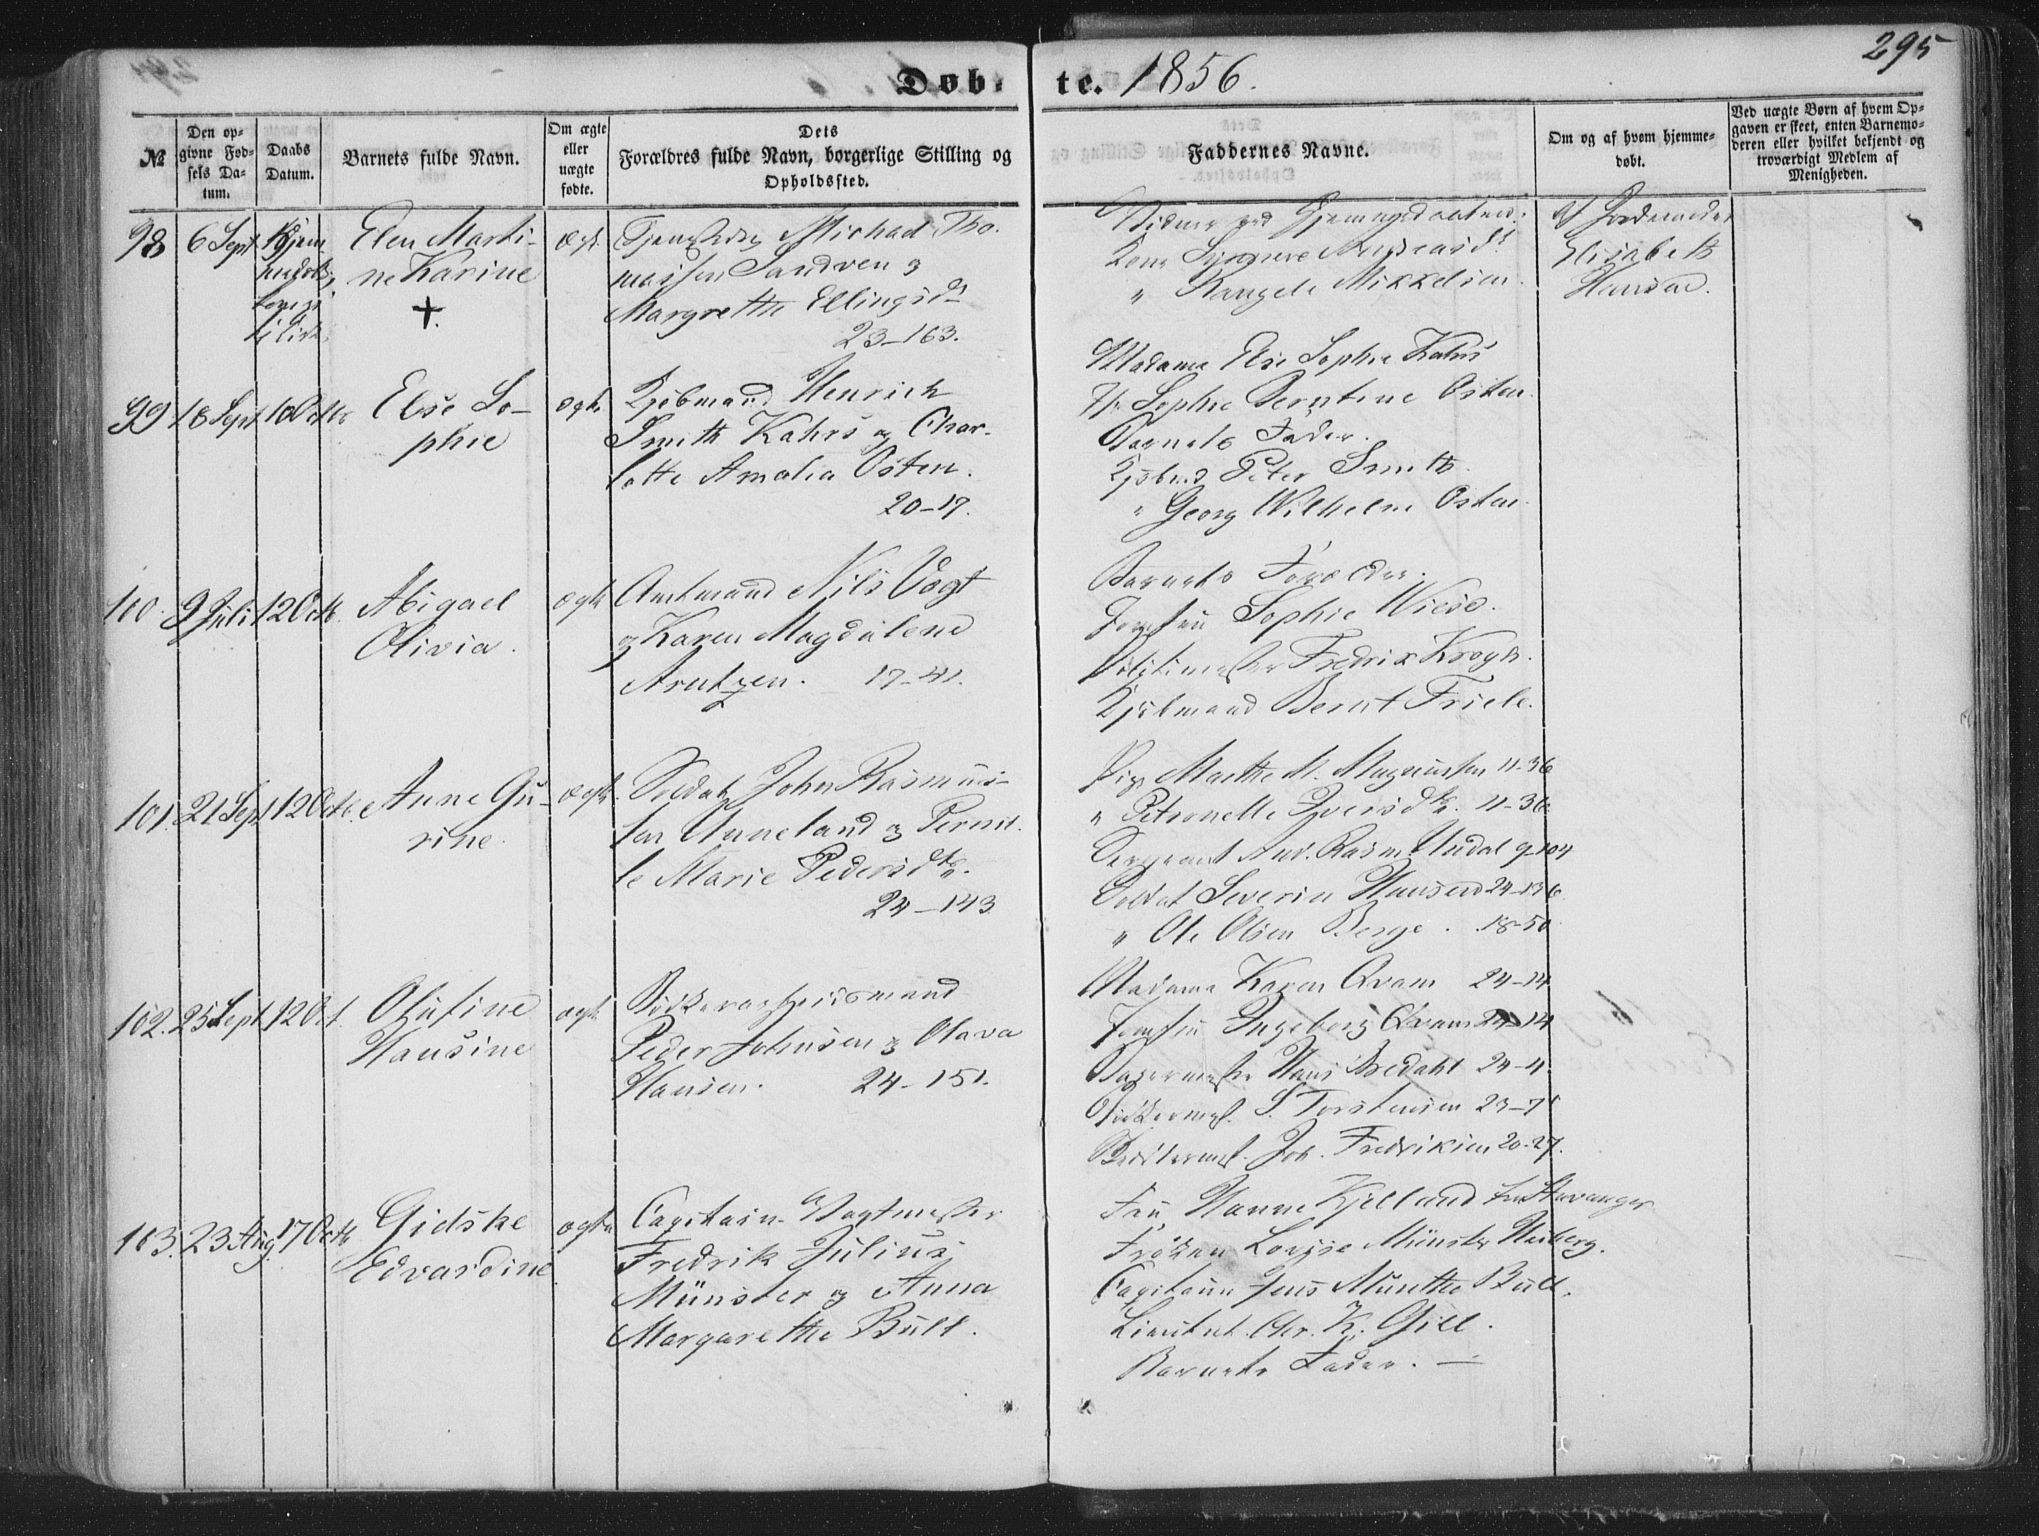 295
Døb- te. 1856.
№
Den op-
givne Fød-
sels Da-
tum.
Daabs
Datum.
Barnets fulde Navn.
Om ægte
eller
uægte
fødte.
Dets
Forældres fulde Navn, borgerlige Stilling og
Opholdssted.
Faddernes Navne.
Om og af hvem hjemme-
døbt.
Ved uægte Børn af hvem Op-
gaven er skeet, enten Barnemo-
deren eller hvilket bekjendt og
troværdigt Medlem af
Menigheden.
98 6 Sept Hjem
Elen Marti-
ne Karine
+.
ægt.
Michael Tho-
massen Sandven og
Margrethe Ellingsdr
23-163.
Vidner ved Hjemmedaaben:
Kone
" Mikkelsen.
af Jordemoder
Elisabeth
Hansen.
99 18 Sept 10 Octb
Else So-
phie
ægte
Kjøbmand Henrich
Smith Kahrs og Char-
lotte Amalia Osten.
20-17.
Madame Else Sophie Kahrs
Sophie Berntine Osten.
Barnets Fader.
Kjøbmd Peter Smith.
" Georg Wilhelm Osten.
100. 9 Juli 12 Octb.
Abigael
Olivia.
ægte
Amtmand Nils Vogt
og Karen Magdalene
Arntzen. 17-41.
Barnets Forældre.
Jomfru Sophie Wiese.
Politimester Fredrik Krogh.
Kjøbmand Bernt Friele.
101. 21 Sept 12 Octb.
Anne Gu-
rine.
ægte.
Soldat John Rasmus-
sen Unneland og Pernil-
le Marie Pedersdtr.
24-143
Pige Marthe M. Magnussen 11-36
" Petronelle Iversdtr. 11-36.
Sergeant And. Rasm. Undal 9-104
Soldat Severin Hansen 24-136
" Ole Olsen Berge. 18-50.
102. 25 Sept 12 Oct.
Olufine
Hansine
ægt.
Peder Johnsen og Olava
Hansen. 24-151.
Madame Karen Qvam 24-14
Jomfru Ingeborg Qvam 24-14
Bagermester Hans Bredahl 24-4.
Bødkermest. S. Torstensen 23-71
Joh. Fredriksen 20-27.
103. 23 Aug. 17 Octb
Gidske
Edvardine
ægte
Capitain Vagtmester
Fredrik Julius
Münster og Anna
Margarethe Bull.
Fru Hanne Kjelland fra Stavanger
Frøken Lovise Münster
Capitain Jens Munthe Bull.
Lieutnt. Chr. K. Gill.
Barnets Fader. —